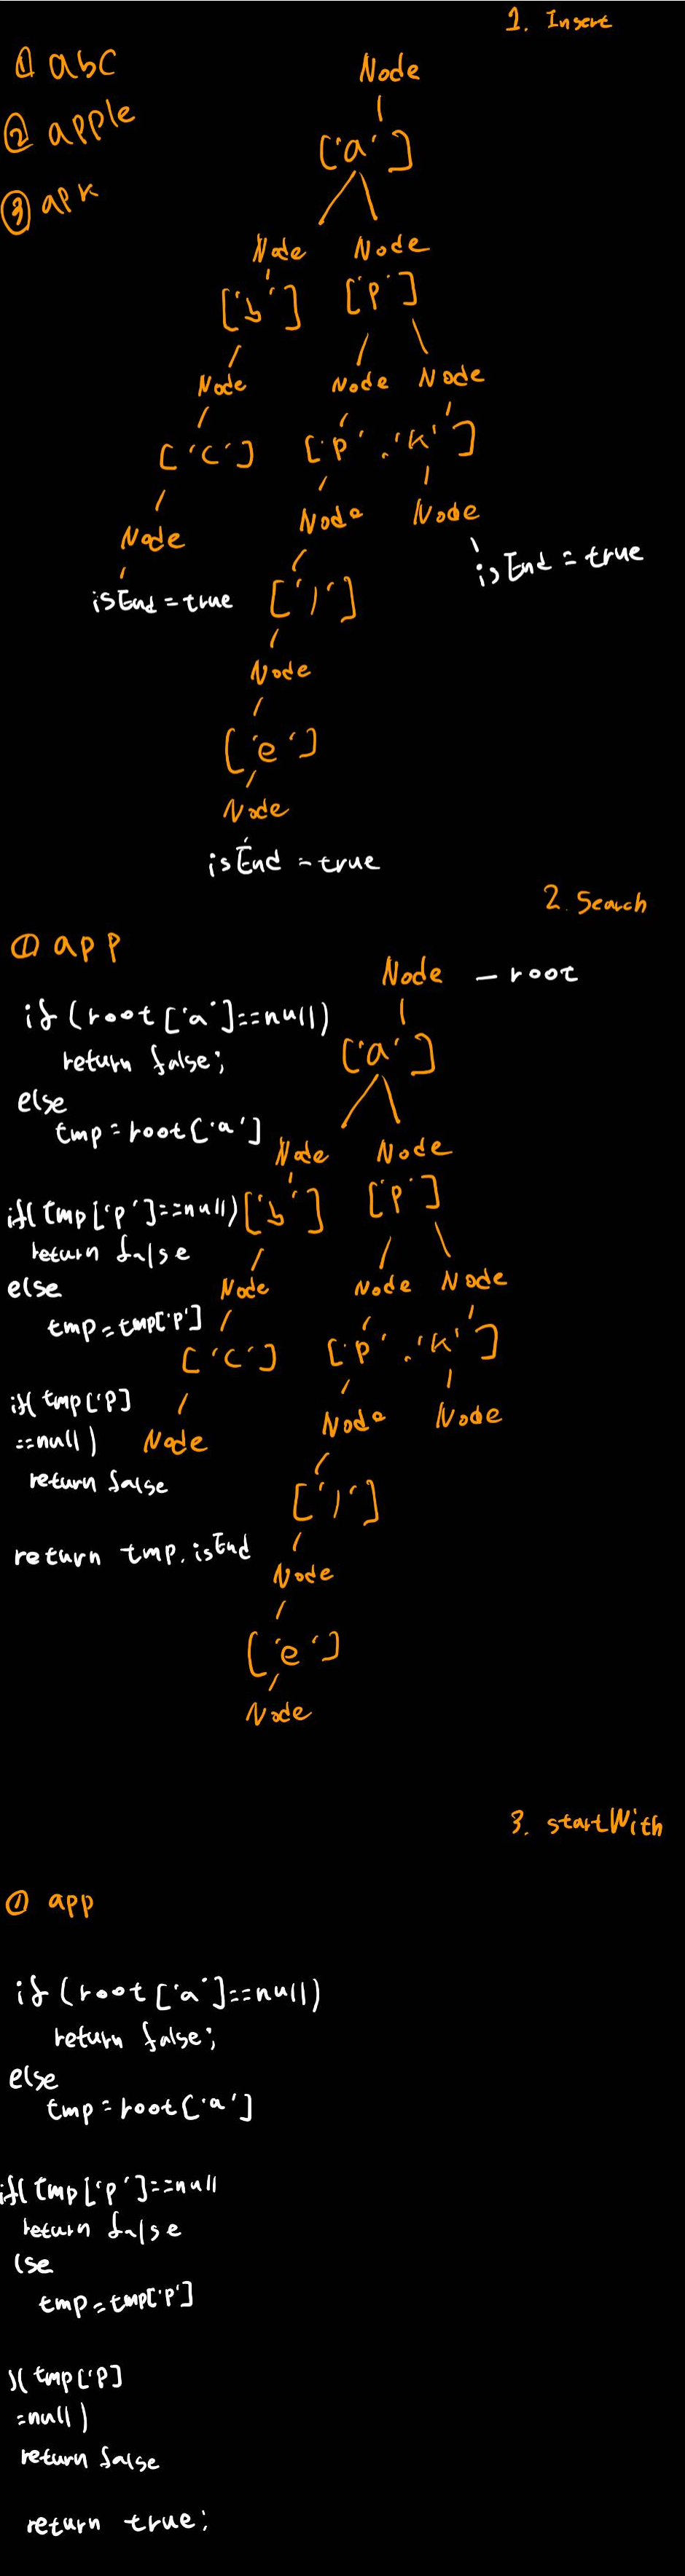 1. Insert
① abc
② apple
③ apk
Node
['a']
Node Node
['b'] ['p']
Node Node Node
['c'] ['p','k']
Node Node Node
isEnd = true isEnd = true
['l']
Node
['e']
Node
isEnd = true
2. Search
① app
Node - root
if (root['a']==null)
return false;
else
tmp = root['a']
['a']
Node Node
if( tmp['p']==null)
return false
else
tmp = tmp['p']
['b'] ['p']
Node Node Node
['c'] ['p','k']
if( tmp['p]
==null)
return false
Node Node Node
['l']
return tmp.isEnd
Node
['e']
Node
3. startWith
① app
if (root['a']==null)
return false;
else
tmp = root['a']
if( tmp['p']==null
return false
lse
tmp = tmp['p']
( tmp['p]
=null)
return false
return true;